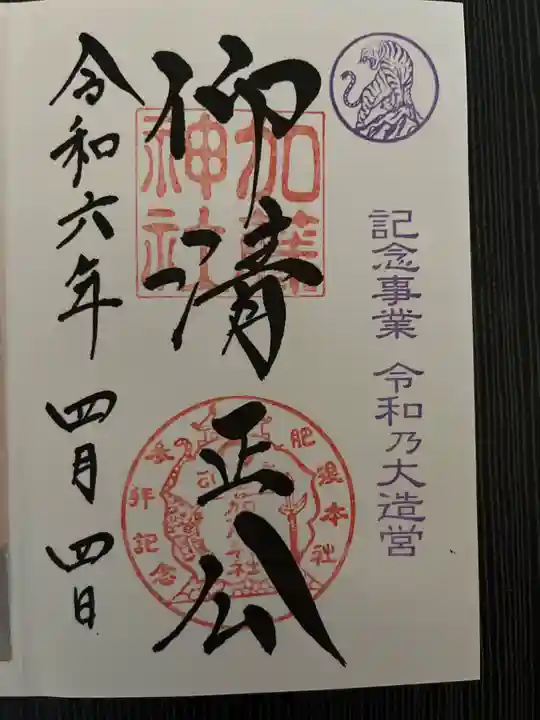 記念事業 令和乃大造営
仰清正公
加藤
神社
参拝記念
肥
本社
令和六年 四月 四日